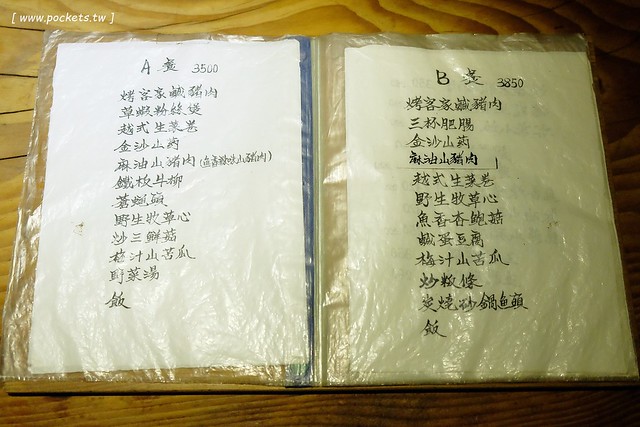 [ www.pockets.tw ]
A 桌 3500
烤客家鹹豬肉
草蝦粉絲煲
越式生菜卷
金沙山药
麻油山豬肉(魚香酸味山豬肉)
鐵板牛柳
蒼蠅頭
野生牧草心
炒三鮮菇
梅汁山苦瓜
野菜湯
飯
B 桌 3850
烤客家鹹豬肉
三杯肥腸
金沙山药
麻油山豬肉
越式生菜卷
野生牧草心
魚香杏鮑菇
鹹蛋豆腐
梅汁山苦瓜
炒粄條
炭燒砂鍋魚頭
飯